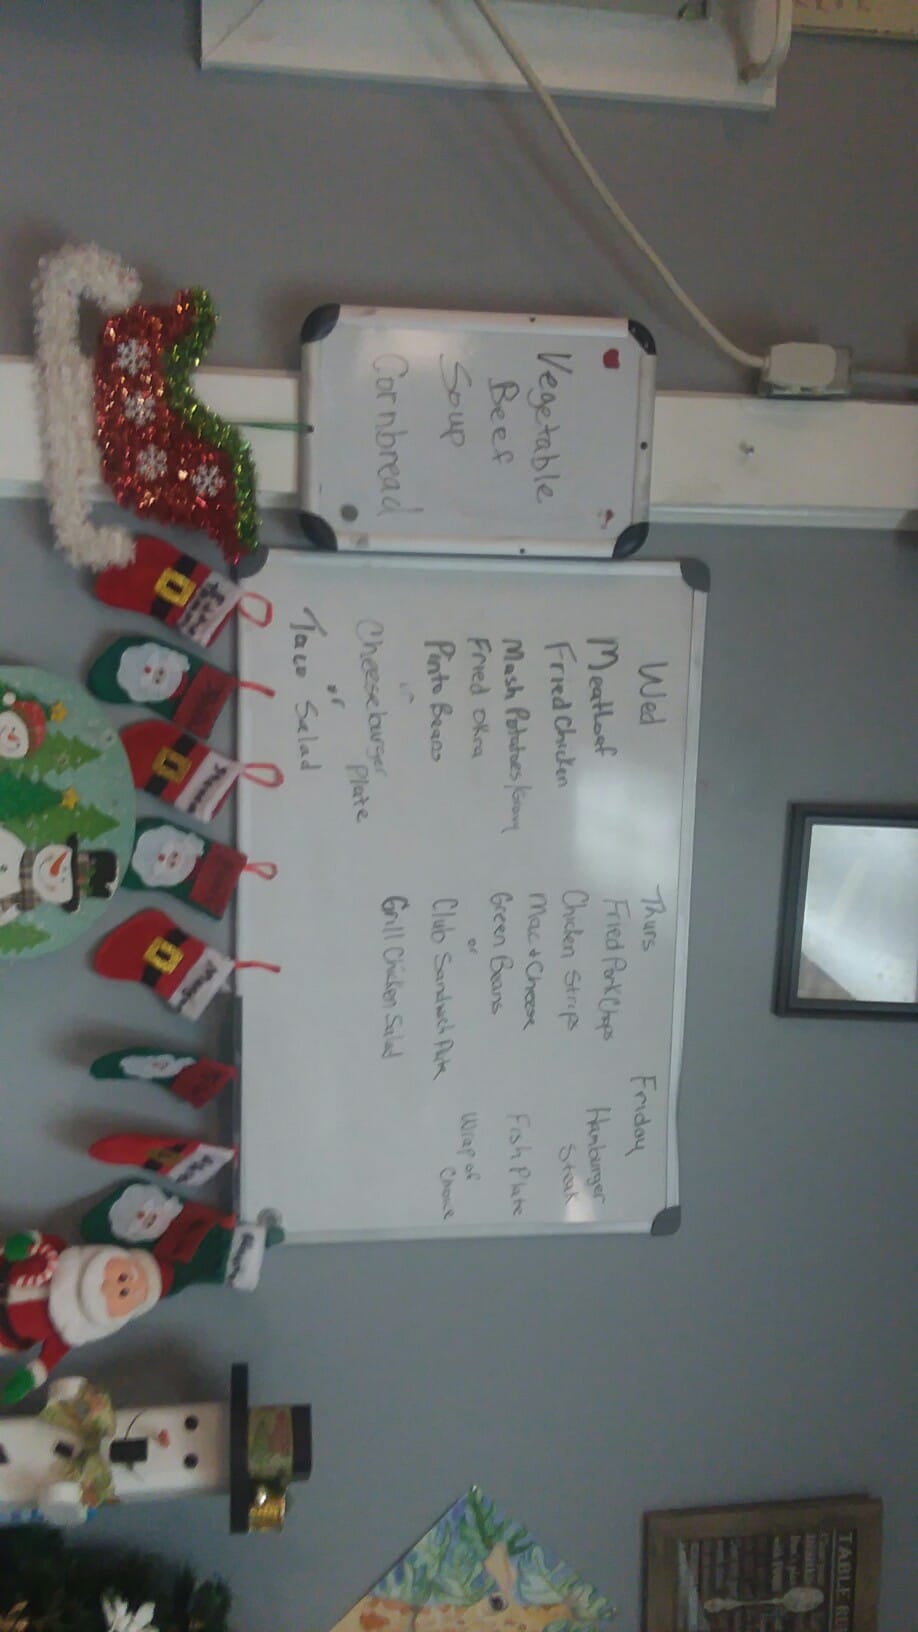 Vegetable
Beef
Soup
Cornbread
Wed
Meatloaf
Fried Chicken
Mash Potatoes/Gravy
Fried Okra
Pinto Beans
or
Cheeseburger Plate
or
Taco Salad
Thurs
Fried Pork Chops
Chicken Strips
Mac + Cheese
Green Beans
or
Club Sandwich Plate
Grill Chicken Salad
Friday
Hamburger
Steak
Fish Plate
Wrap of
Choice
TABLE